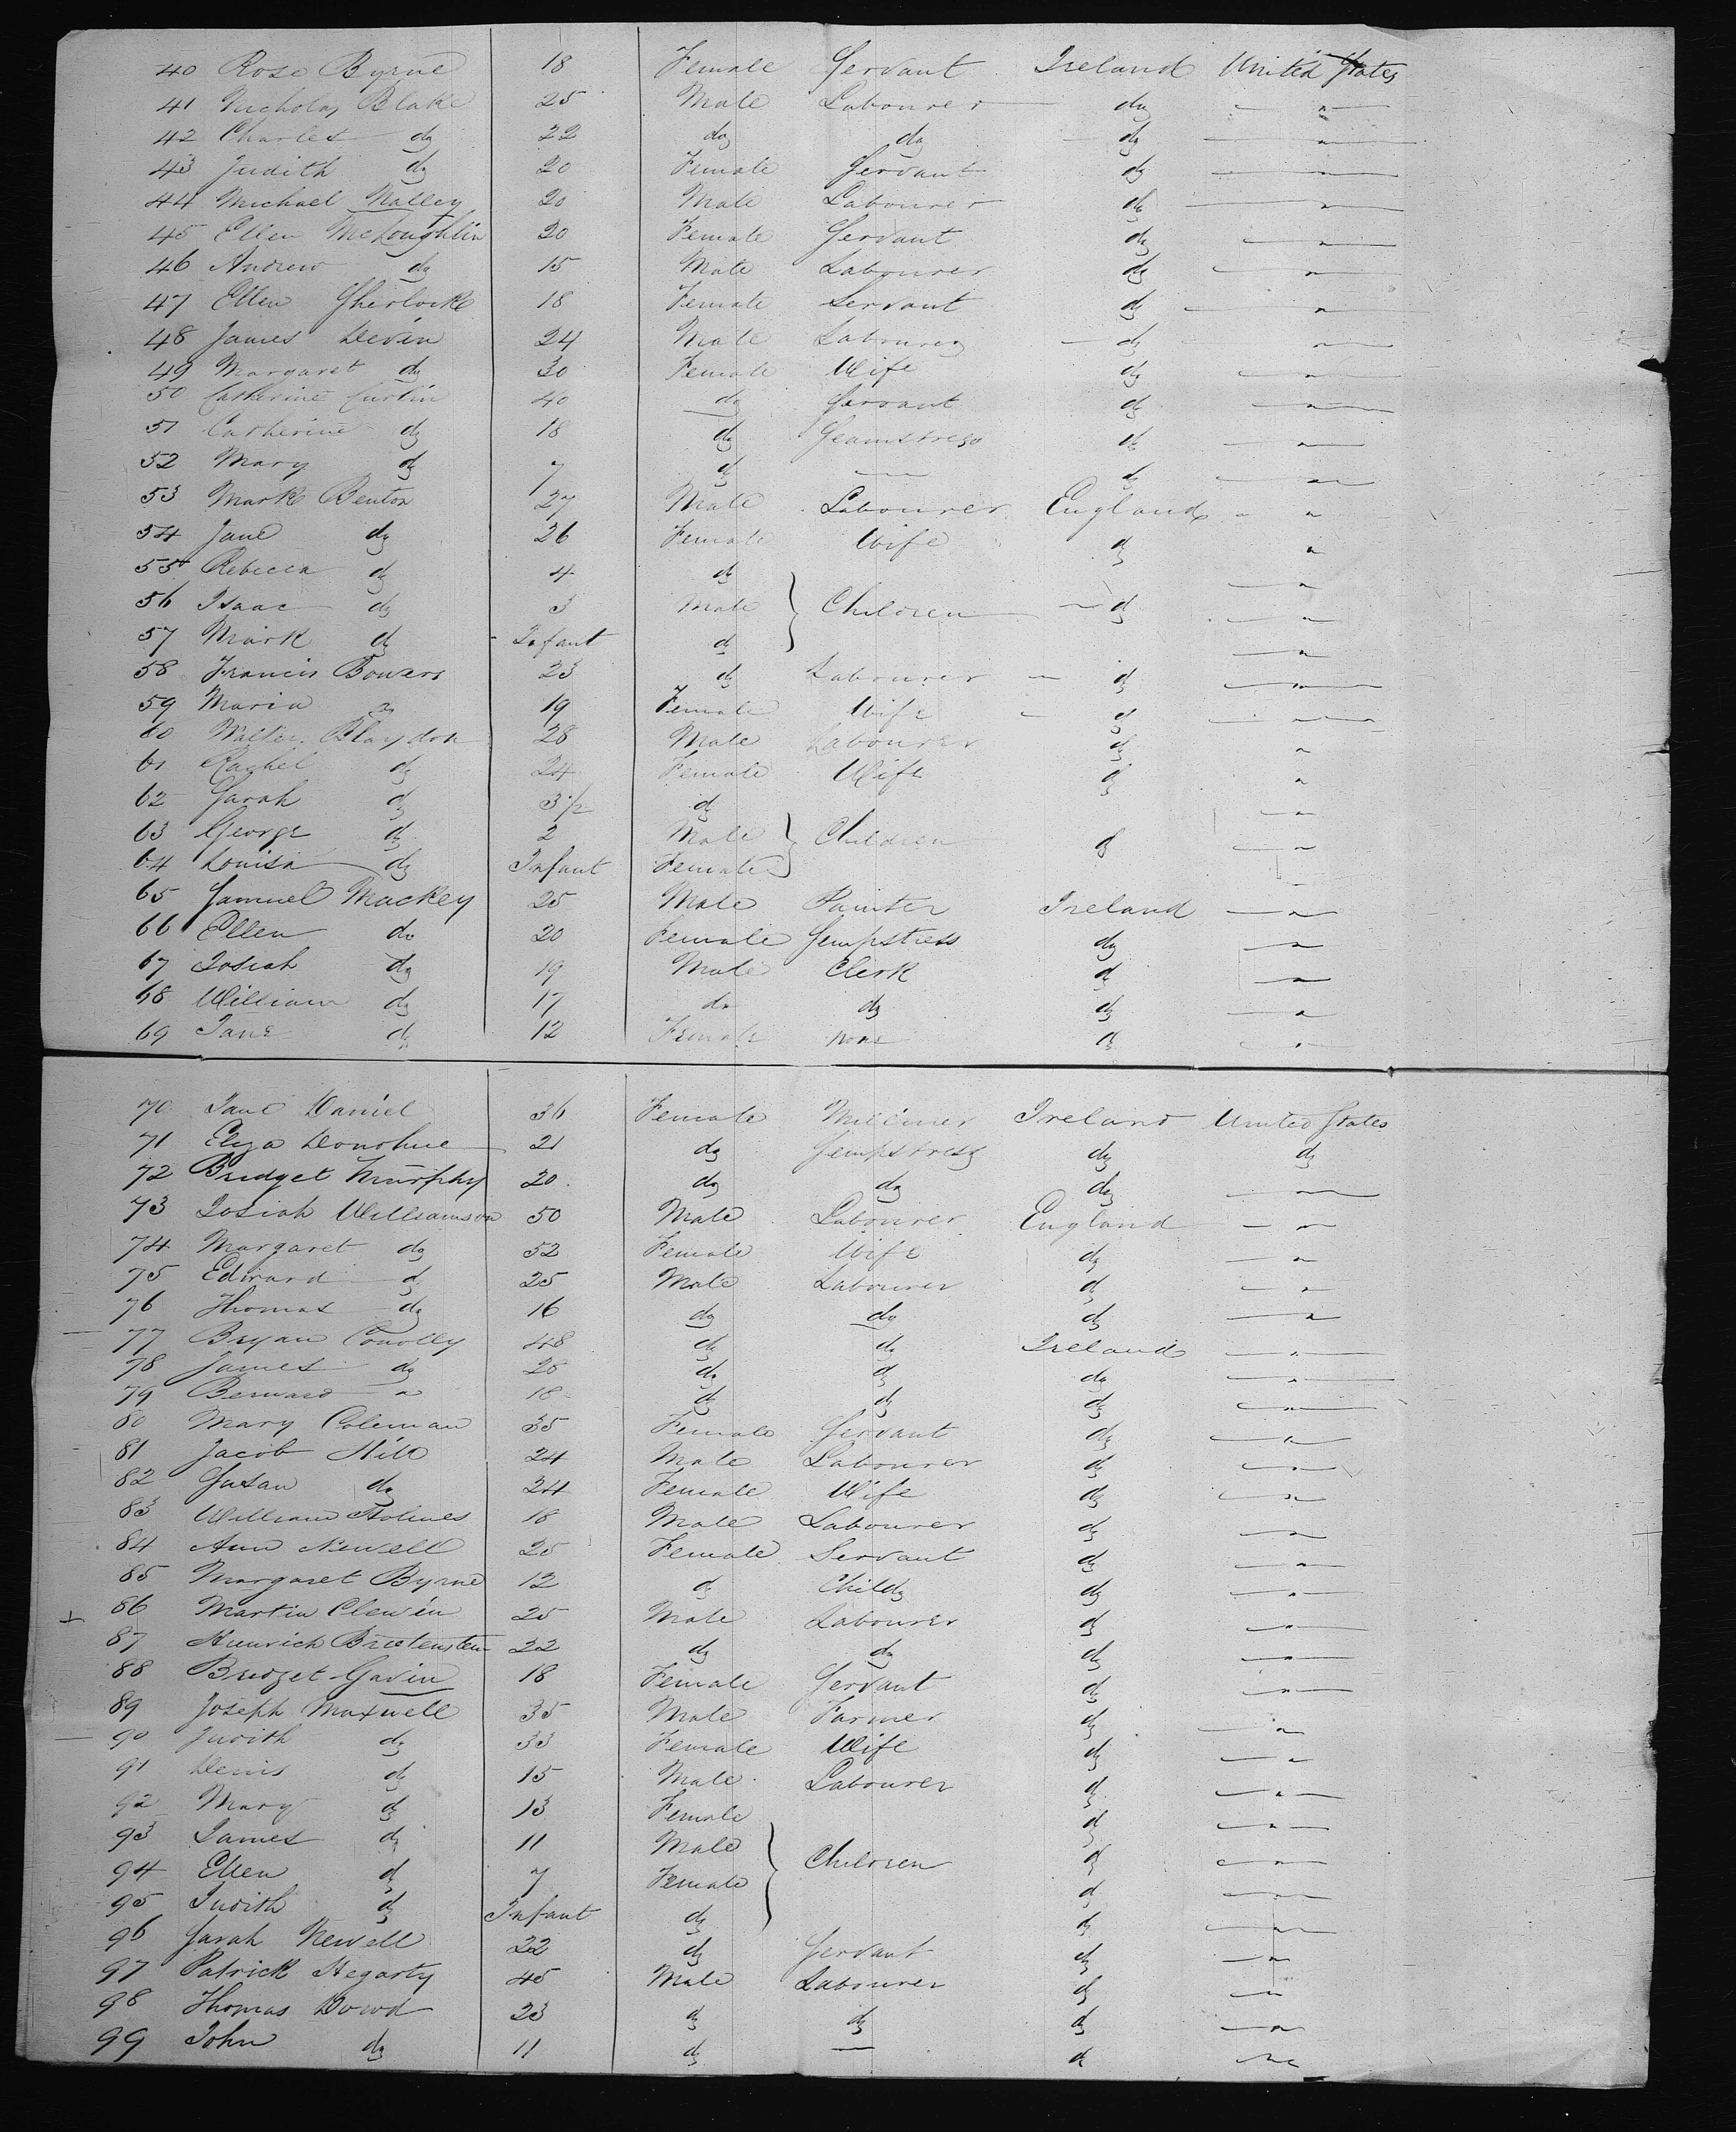 40 Rose Byrne 18 Female Servant Ireland United States
41 Nicholas Blake 25 Male Labourer do "
42 Charles do 22 do do do "
43 Judith do 20 Female Servant do "
44 Michael Nalley 20 Male Labourer do "
45 Ellen McLoughlin 20 Female Servant do "
46 Andrew do 15 Male Labourer do "
47 Ellen Sherlocke 18 Female Servant do "
48 James Devin 24 Male Labourer do "
49 Margaret do 30 Female Wife do "
50 Catherine Curtin 40 do Servant do "
51 Catherine do 18 do Seamstress do "
52 Mary do 7 do — do "
53 Mark Benton 27 Male Labourer England "
54 Jane do 26 Female Wife do "
55 Rebecca do 4 do "
56 Isaac do 3 Male Children do "
57 Mark do Infant do "
58 Francis Bowers 23 do Labourer do "
59 Maria do 19 Female Wife do "
60 Walter Blaydon 28 Male Labourer do "
61 Rachel do 24 Female Wife do "
62 Sarah do 3½ do "
63 George do 2 Male Children do "
64 Louisa do Infant Female
65 Samuel Mackey 25 Male Painter Ireland "
66 Ellen do 20 Female Sempstress do "
67 Josiah do 19 Male Clerk do "
68 William do 17 do do do "
69 Jane do 12 Female none do "
70 Jane Daniel 36 Female Milliner Ireland United States
71 Eliza Donohue 21 do Sempstress do do
72 Bridget Murphy 20 do do do "
73 Josiah Williamson 50 Male Labourer England "
74 Margaret do 52 Female Wife do "
75 Edward do 25 Male Labourer do "
76 Thomas do 16 do do do "
77 Bryan Conolly 48 do do Ireland "
78 James do 20 do do do "
79 Bernard " 18 do do do "
80 Mary Coleman 35 Female Servant do "
81 Jacob Hill 24 Male Labourer do "
82 Susan do 24 Female Wife do "
83 William Holmes 18 Male Labourer do "
84 Ann Newell 25 Female Servant do "
85 Margaret Byrne 12 do Child do "
86 Martin Clewin 25 Male Labourer do "
87 Heinrich 22 do do do "
88 Bridget Gavin 18 Female Servant do "
89 Joseph Maxwell 35 Male Farmer do "
90 Judith do 33 Female Wife do "
91 Denis do 15 Male Labourer do "
92 Mary do 13 Female do "
93 James do 11 Male Children do "
94 Ellen do 7 Female do "
95 Judith do Infant do do "
96 Sarah Newell 22 do Servant do "
97 Patrick Hegarty 45 Male Labourer do "
98 Thomas Dowd 23 do do do "
99 John do 11 do — do "